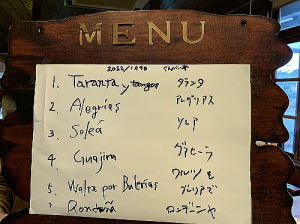 MENU
1. Taranta y tangos タランタ
2. Alegrías アレグリアス
3. Soleá ソレア
4. Guajira グアヒーラ
5. Waltz por Bulerías ワルツ も ブレリアで
Rondeña ロンデーニャ